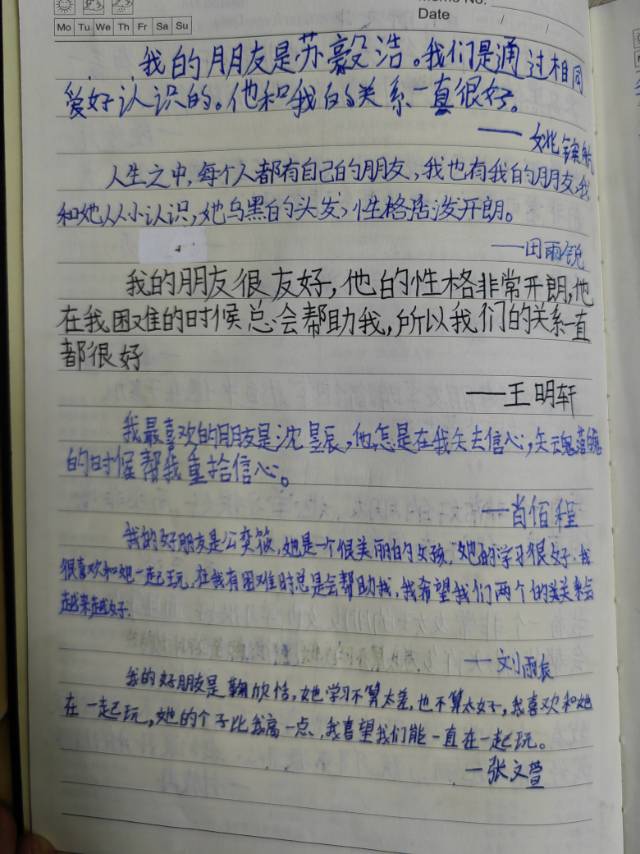 Memo No.
Date / /
Mo Tu We Th Fr Sa Su
我的朋友是苏毅浩。我们是通过相同
爱好认识的。他和我的关系一直很好。
——姚
人生之中,每个人都有自己的朋友,我也有我的朋友,我
和她从小认识,她乌黑的头发,性格活泼开朗。
——田雨锐
我的朋友很友好,他的性格非常开朗,他
在我困难的时候总会帮助我,所以我们的关系一直
都很好
——王明轩
我最喜欢的朋友是沈昱辰,他总是在我失去信心,失云魂落魄
的时候帮我重拾信心。
——肖佰程
我的好朋友是公奕筱,她是一个很美丽的女孩,她的学习很好,我
很喜欢和她一起玩,在我有困难时总是会帮助我,我希望我们两个的关系会
越来越好.
——刘雨辰
我的好朋友是鞠欣恬,她学习不算太差,也不算太好,我喜欢和她
在一起玩,她的个子比我高一点,我喜望我们能一直在一起玩。
—张文萱